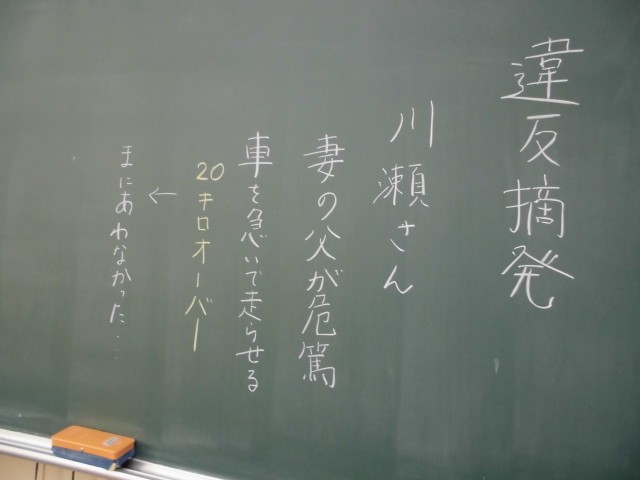 違反摘発
川瀬さん
妻の父が危篤
車を急いで走らせる
20キロオーバー
←
まにあわなかった…